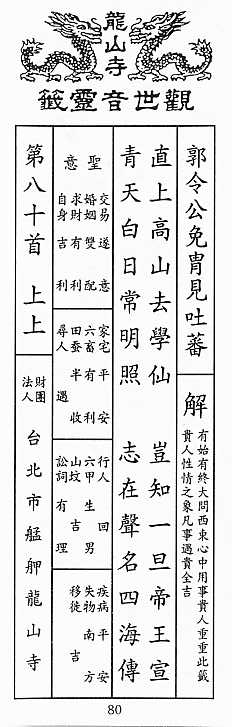 龍山寺
觀世音靈籤
郭令公免冑見吐蕃
解
有始有終大問西東心中用事貴人重重此籤
貴人性情之象凡事遇貴全吉
直上高山去學仙 豈知一旦帝王宣
青天白日常明照 志在聲名四海傳
聖意
交易 遂意
婚姻 雙配
求財 有利
自身 吉利
家宅 平安
六畜 有利
田蠶 半收
尋人 遇
行人 回
六甲 生男
山坟 吉
訟詞 有理
疾病 平安
失物 南方
移徙 吉
第八十首 上上
財團
法人
台北市艋舺龍山寺
80